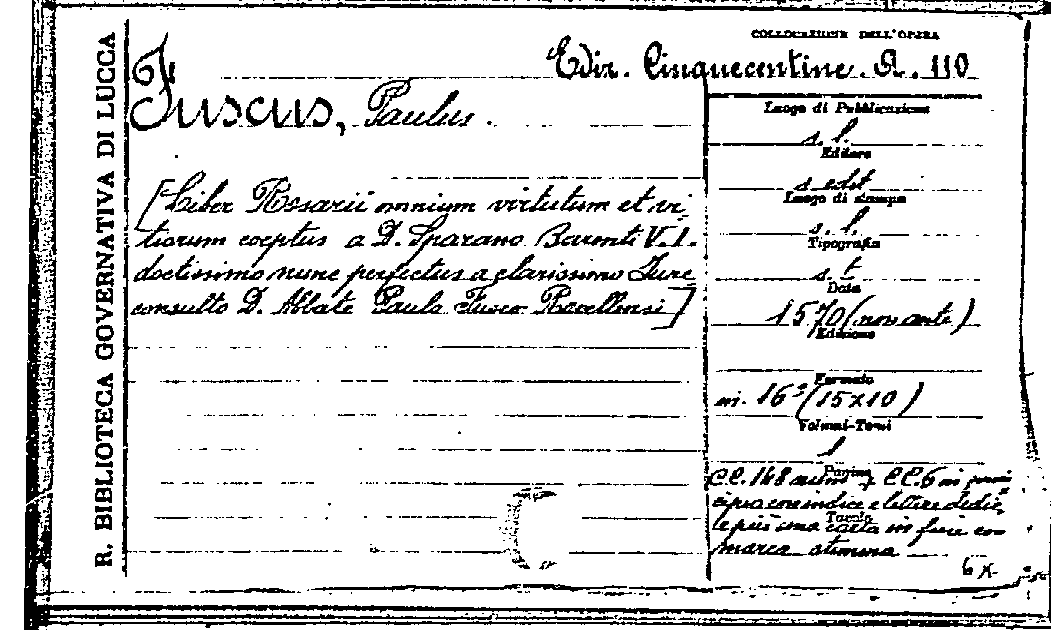 R. BIBLIOTECA GOVERNATIVA DI LUCCA
COLLOCAZIONE DELL'OPERA
Ediz. Cinquecentine. A. 110
Fuscus, Paulus.
[Liber Rosarii omnium virtutum et vi-
tiorum coeptus a D. Sparano Barenti V. I.
doctissimo nunc perfectus a clarissimo Jure
consulto D. Abbate Paulo Fusco Ravellensi]
Luogo di Pubblicazione
s. l.
Editore
s. edit
Luogo di stampa
s. l.
Tipografia
s. t
Data
1570 (non ante)
Edizione
Formato
in. 16° (15x10)
Volumi-Tomi
1
Pagine
CC. 148 num + CC. 6 in prin
cipio con indice e lettere dedic,
Tavole
e più una carta in fine con
marca